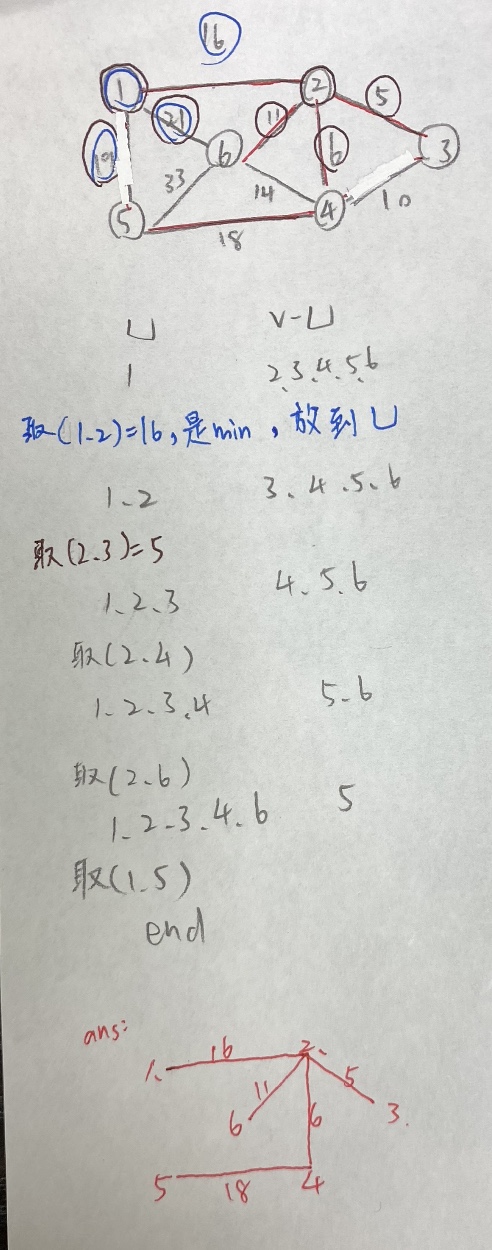 16
1 2 5
21 11
19 6 6 3
33 14 10
5 4
18
U V-U
1 2.3.4.5.6
取(1-2)=16,是min,放到U
1.2 3.4.5.6
取(2.3)=5
1.2.3 4.5.6
取(2.4)
1.2.3.4 5.6
取(2.6)
1.2.3.4.6 5
取(1.5)
end
ans:
1. 16 2.
11 5
6 6 3.
5 18 4